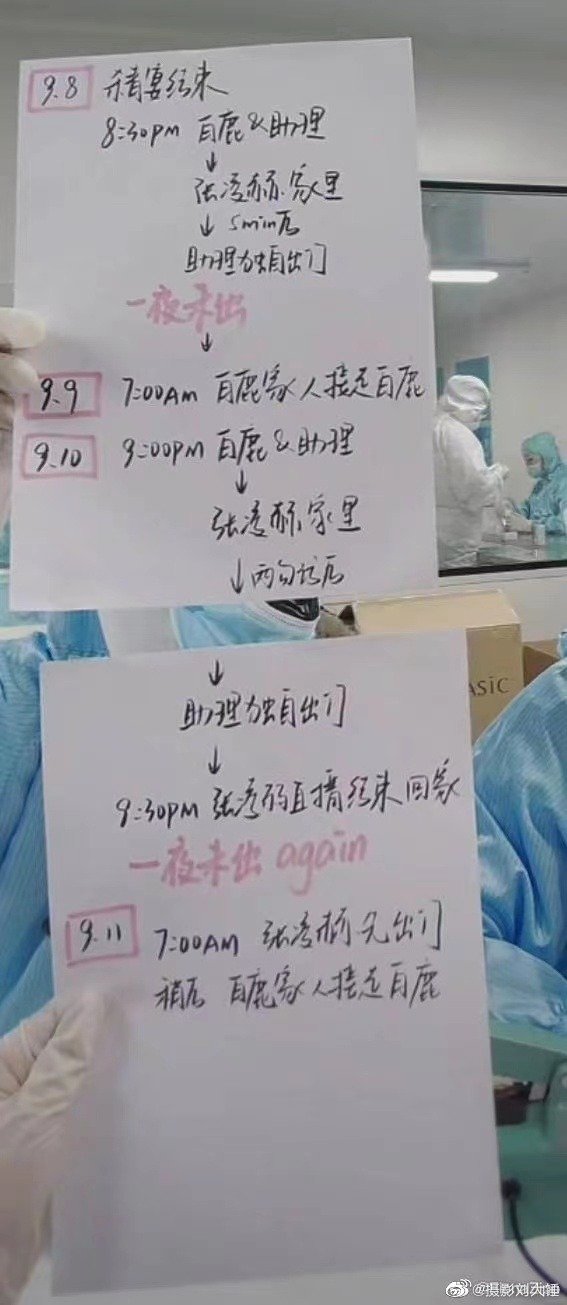 9.8 杀青宴结束
8:30pm 白鹿&助理
↓
张凌赫家里
↓ 5min后
助理独自出门
一夜未出
↓
9.9 7:00AM 白鹿家人接走白鹿
9.10 9:00PM 白鹿&助理
↓
张凌赫家里
↓ 两句话后
↓
助理独自出门
↓
9:30PM 张凌赫直播结束回家
一夜未出 again
9.11 7:00AM 张凌赫先出门
稍后 白鹿家人接走白鹿
ASIC
@摄影刘大锤